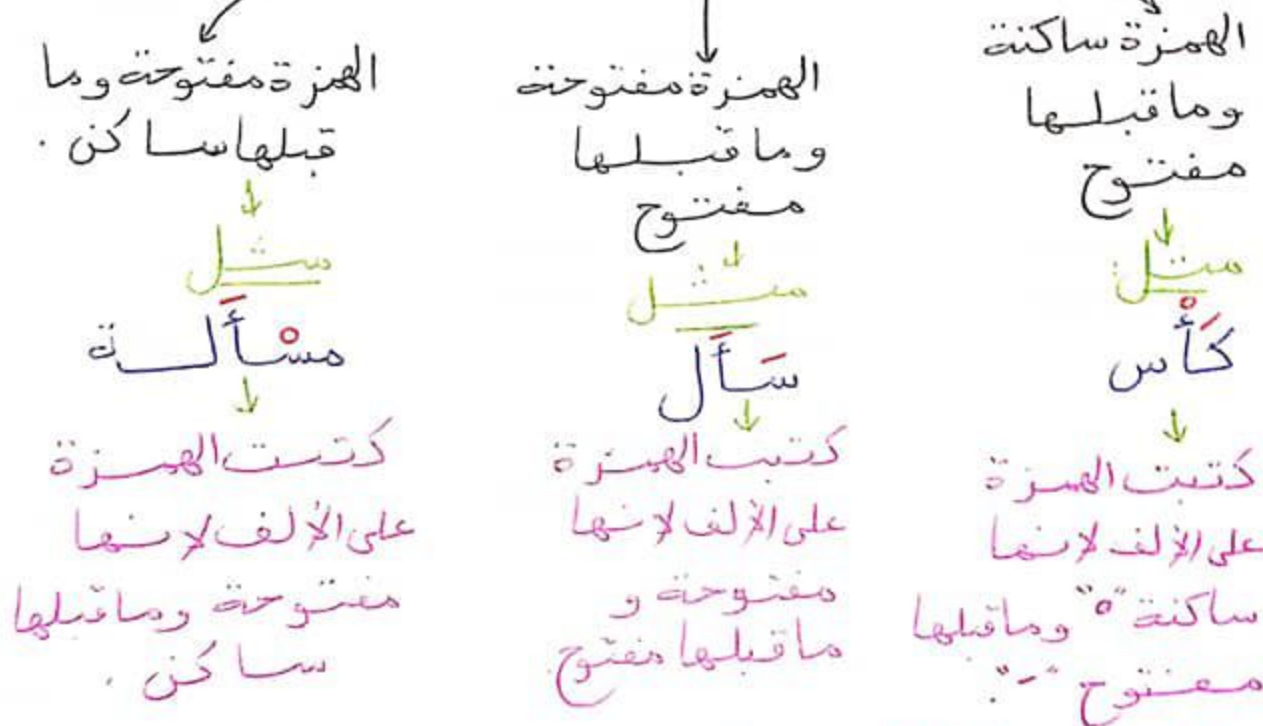 الهمزة ساكنة
وما قبلها
مفتوح
مثل
كَأْس
كتبت الهمزة
على الألف لانها
ساكنة "ْ" وما قبلها
مفتوح "َ".
الهمزة مفتوحة
وما قبلها
مفتوح
مثل
سَأَل
كتبت الهمزة
على الألف لانها
مفتوحة و
ما قبلها مفتوح.
الهمزة مفتوحة وما
قبلها ساكن.
مثل
مسْأَلة
كتبت الهمزة
على الألف لانها
مفتوحة وما قبلها
ساكن.